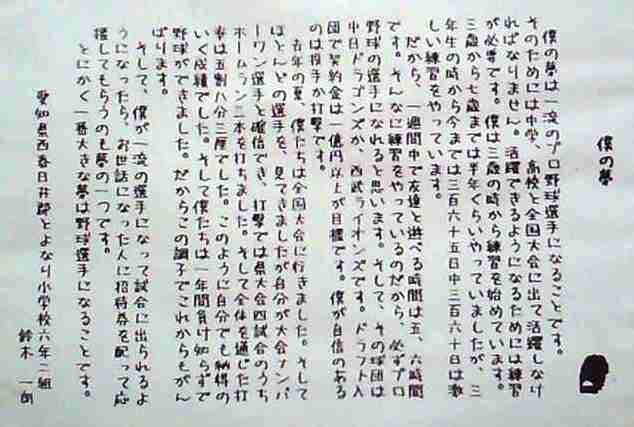 僕の夢
僕の夢は一流のプロ野球選手になることです。
そのためには中学、高校と全国大会に出て活躍しなけ
ればなりません。活躍できるようになるためには練習
が必要です。僕は三歳の時から練習を始めています。
三歳から七歳までは半年ぐらいやっていましたが、三
年生の時から今までは三百六十五日中三百六十日は激
しい練習をやっています。
だから、一週間中で友達と遊べる時間は五、六時間
です。そんなに練習をやっているのだから、必ずプロ
野球の選手になれると思います。そして、その球団は
中日ドラゴンズか、西武ライオンズです。ドラフト入
団で契約金は一億円以上が目標です。僕が自信のある
のは投手か打撃です。
去年の夏、僕たちは全国大会に行きました。そして
ほとんどの選手を、見てきましたが自分が大会ナンバ
ーワン選手と確信でき、打撃では県大会四試合のうち
ホームラン二本を打ちました。そして全体を通じた打
率は五割八分三厘でした。このように自分でも納得の
いく成績でした。そして僕たちは一年間負け知らずで
野球ができました。だからこの調子でこれからもがん
ばります。
そして、僕が一流の選手になって試合に出られるよ
うになったら、お世話になった人に招待券を配って応
援してもらうのも夢の一つです。
とにかく一番大きな夢は野球選手になることです。
愛知県西春日井郡とよなり小学校六年二組
鈴木 一朗